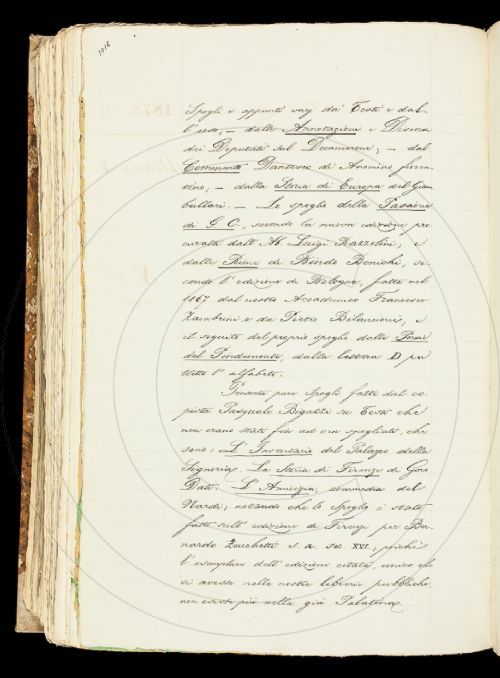 1016
Spogli e appunti varj dai Testi e dal-
l'uso, — dalle Annotazioni e Discorsi
dei Deputati sul Decamerone; — dal
Commento Dantesco di Anonimo fioren-
tino; — dalla Storia di Europa del Giam-
bullari. — Lo spoglio della Passione
di G. C., secondo la nuova edizione pro-
curata dall'Ab. Luigi Razzolini; e
dalle Rime di Bindo Bonichi, se-
condo l'edizione di Bologna, fatta nel
1867 dal nostro Accademico Francesco
Zambrini e da Pietro Bilancioni; e
il seguito del proprio spoglio dalle
del dalla lettera D per
tutto l'alfabeto.
Presenta pure spogli fatti dal co-
pista Pasquale Bigazzi su Testi che
non erano stati fin ad ora spogliati, che
sono: L'Inventario del Palazzo della
Signoria, La Storia di Firenze di Goro
Dati. L'Amicizia, commedia del
Nardi; notando che lo spoglio è stato
fatto sull'edizione di Firenze per Ber-
nardo Zucchetta s. a. sec. XVI, poichè
l'esemplare dell'edizione citata, unico che
si avesse nelle nostre librerie pubbliche,
non esiste più nella già Palatina.